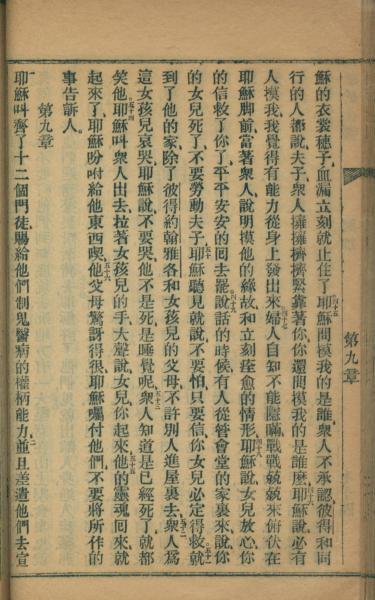 第九章
穌的衣裳穗子、血漏立刻就止住了、四十五耶穌問摸我的是誰、衆人不承認、彼得和同
行的人都說夫子、衆人擁擁擠擠緊靠著你、你還問摸我的是誰麽、四十六耶穌說、必有
人摸我、我覺得有能力從身上發出來、四十七婦人自知不能隱瞞、戰戰兢兢來俯伏在
耶穌脚前、當著衆人、說明摸他的緣故、和立刻痊愈的情形、四十八耶穌說、女兒放心、你
的信救了你了、平平安安的回去罷、四十九說話的時候、有人從管會堂的家裏來、說、你
的女兒死了、不要勞動夫子、五十耶穌聽見就說、不要怕、只要信、你女兒必定得救、五十一就
到了他的家、除了彼得約翰雅各、和女孩兒的父母、不許別人進屋裏去、五十二衆人爲
這女孩兒哀哭、耶穌說、不要哭、他不是死、是睡覺呢、五十三衆人知道是已經死了、就都
笑他、五十四耶穌叫衆人出去、拉著女孩兒的手、大聲說、女兒、你起來、五十五他的靈魂回來、就
起來了、耶穌吩咐給他東西喫、五十六他父母驚訝得很、耶穌囑付他們、不要將所作的
事告訴人、
第九章
一耶穌叫齊了十二個門徒、賜給他們制鬼醫病的權柄能力、二並且差遣他們去宣